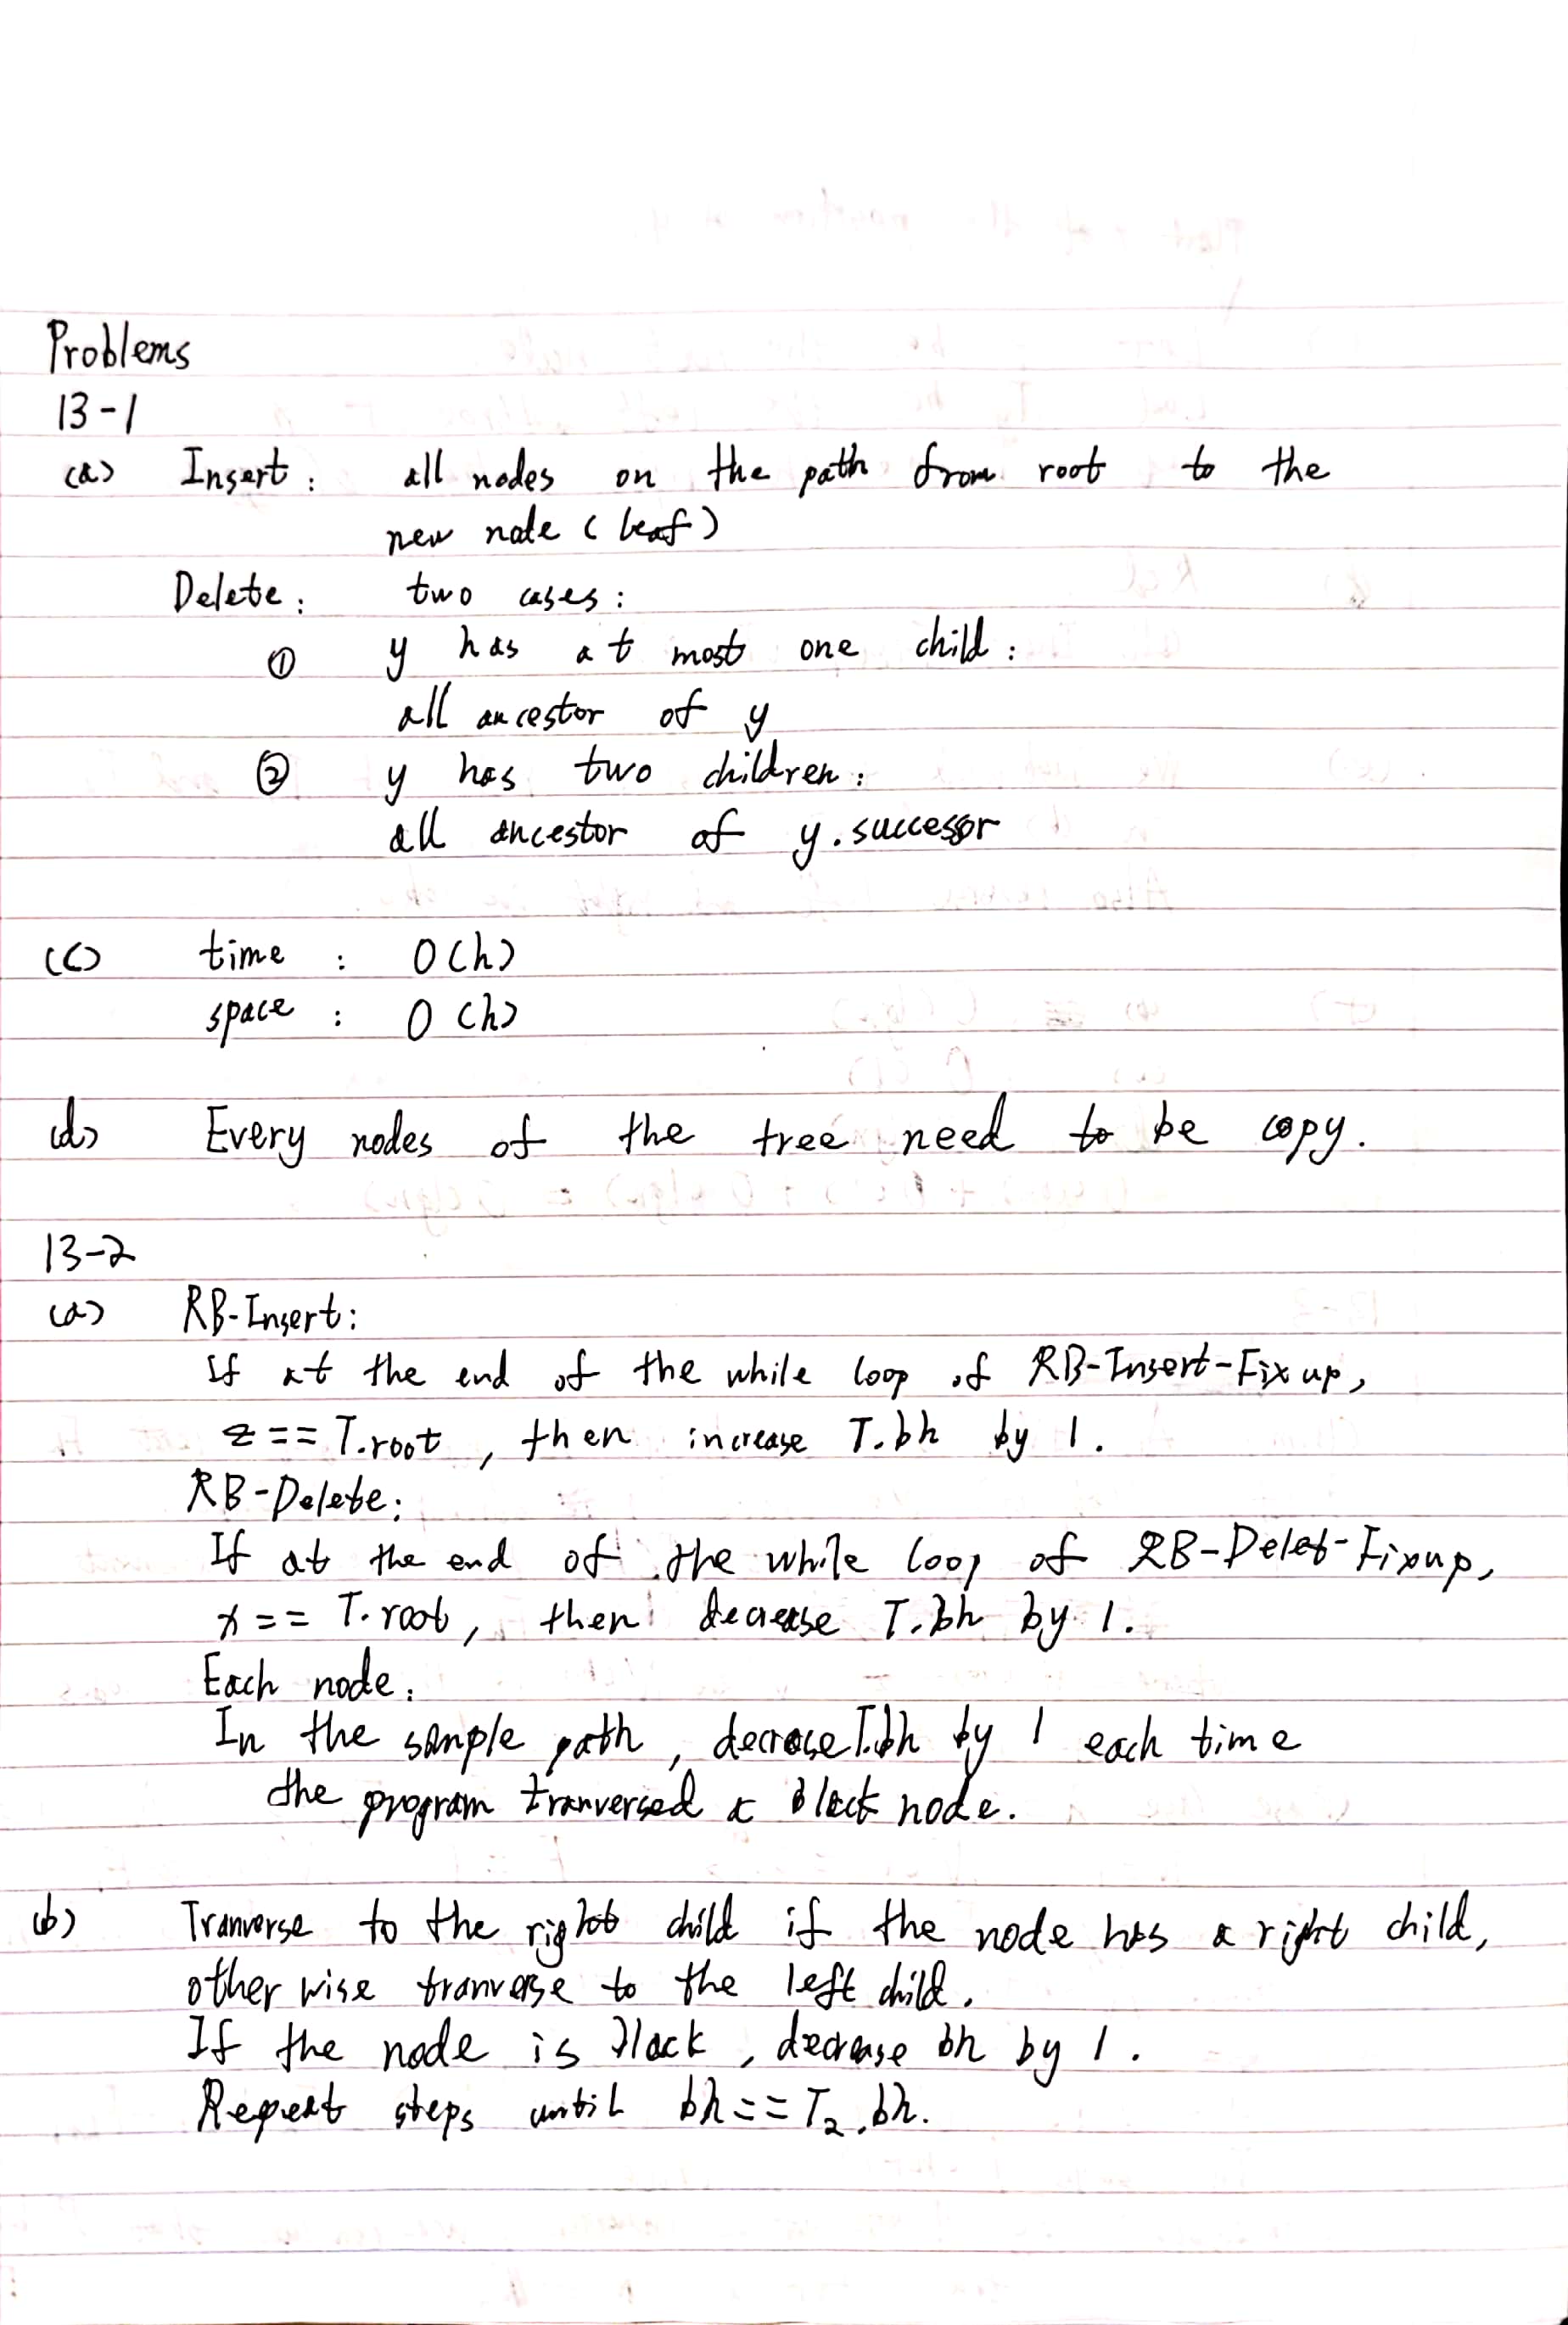 Problems
13-1
(a) Insert: all nodes on the path from root to the
new node (leaf)
Delete: two cases:
① y has at most one child:
all ancestor of y
② y has two children:
all ancestor of y.successor
(c) time : O(h)
space : O(h)
(d) Every nodes of the tree need to be copy.
13-2
(a) RB-Insert:
If at the end of the while loop of RB-Insert-Fixup,
z == T.root, then increase T.bh by 1.
RB-Delete:
If at the end of the while loop of RB-Delet-Fixup,
x == T.root, then decrease T.bh by 1.
Each node:
In the sample path, decrase T.bh by 1 each time
the program tranversed a black node.
(b) Tranverse to the right child if the node has a right child,
otherwise tranverse to the left child.
If the node is black, decrease bh by 1.
Repeat steps until bh == T₂.bh.